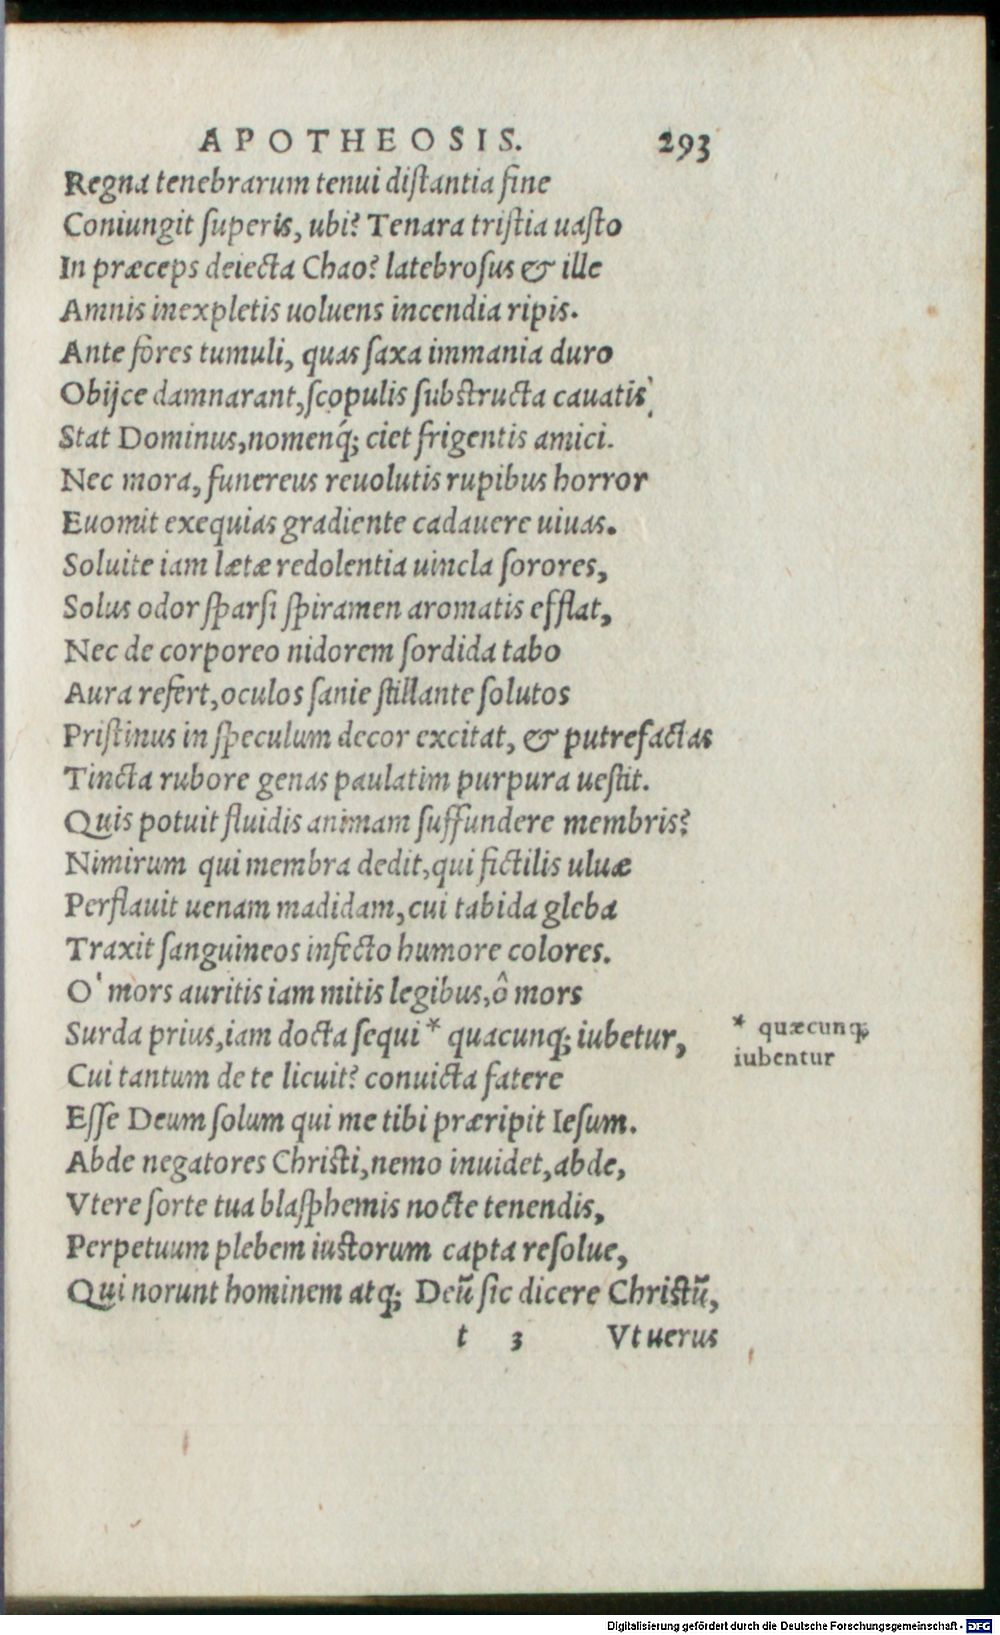 APOTHEOSIS. 293
Regna tenebrarum tenui diſtantia fine
Coniungit ſuperis, ubi? Tenara triſtia uaſto
In præceps deiecta Chao? latebroſus & ille
Amnis inexpletis uoluens incendia ripis.
Ante fores tumuli, quas ſaxa immania duro
Obijce damnarant,ſcopulis ſubſtructa cauatis,
Stat Dominus,nomenq́; ciet frigentis amici.
Nec mora, funereus reuolutis rupibus horror
Euomit exequias gradiente cadauere uiuas.
Soluite iam lætæ redolentia uincla ſorores,
Solus odor ſparſi ſpiramen aromatis efflat,
Nec de corporeo nidorem ſordida tabo
Aura refert,oculos ſanie ſtillante ſolutos
Priſtinus in ſpeculum decor excitat, & putrefactas
Tincta rubore genas paulatim purpura ueſtit.
Quis potuit fluidis animam ſuffundere membris?
Nimirum qui membra dedit,qui fictilis uluæ
Perflauit uenam madidam,cui tabida gleba
Traxit ſanguineos infecto humore colores.
O' mors auritis iam mitis legibus,ô mors
Surda prius,iam docta ſequi * quacunq; iubetur,
* quæcunq;
iubentur
Cui tantum de te licuit? conuicta fatere
Eſſe Deum ſolum qui me tibi præripit Ieſum.
Abde negatores Chriſti,nemo inuidet,abde,
Vtere ſorte tua blaſphemis nocte tenendis,
Perpetuum plebem iuſtorum capta reſolue,
Qui norunt hominem atq; Deũ ſic dicere Chriſtũ,
t 3 Vt uerus
Digitalisierung gefördert durch die Deutsche Forschungsgemeinschaft - DFG